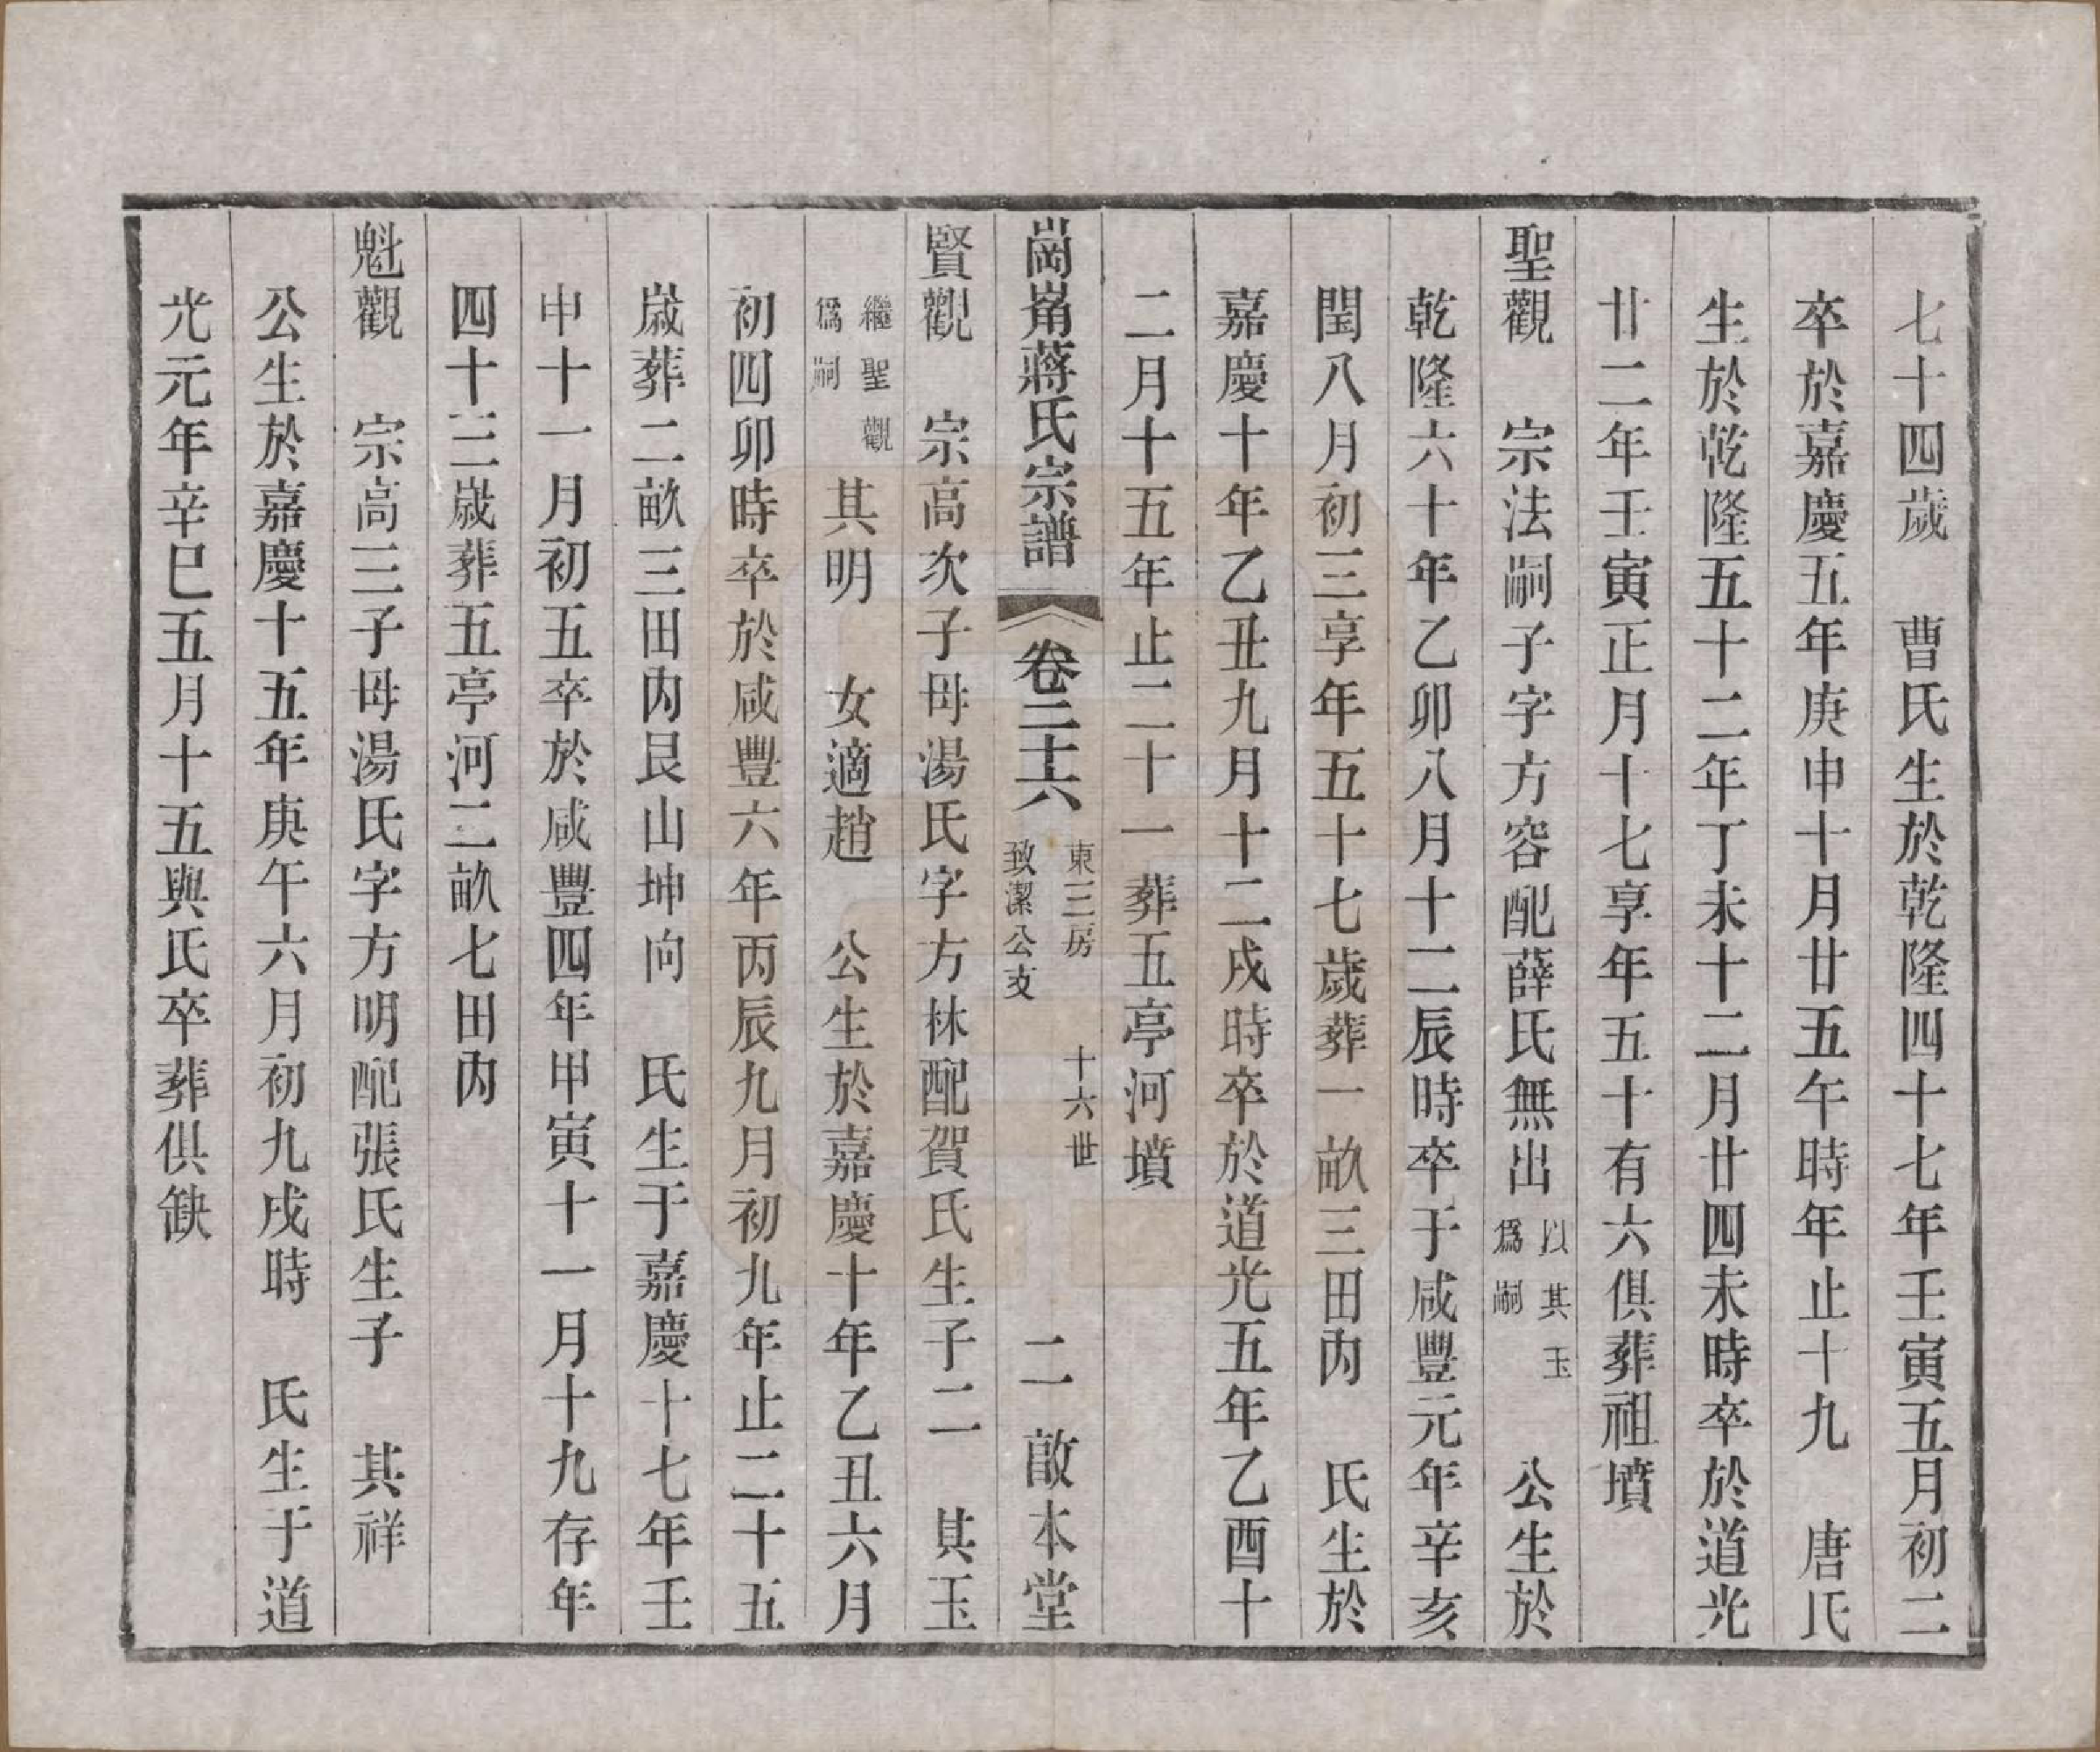 七十四歲　曹氏生於乾隆四十七年壬寅五月初二
卒於嘉慶五年庚申十月廿五午時年止十九　唐氏
生於乾隆五十二年丁未十二月廿四未時卒於道光
廿二年壬寅正月十七享年五十有六俱葬祖墳
聖觀　宗法嗣子字方容配薛氏無出以其玉爲嗣　公生於
乾隆六十年乙卯八月十二辰時卒于咸豐元年辛亥
閏八月初三享年五十七歲葬一畝三田內　氏生於
嘉慶十年乙丑九月十二戌時卒於道光五年乙酉十
二月十五年止二十一葬五亭河墳
崗嵛蔣氏宗譜　卷二十六　東三房致潔公支　十六世　二　敵本堂
賢觀　宗高次子母湯氏字方林配賀氏生子二　其玉
繼聖觀爲嗣　其明　女適趙　公生於嘉慶十年乙丑六月
初四卯時卒於咸豐六年丙辰九月初九年止二十五
歲葬二畝三田內艮山坤向　氏生于嘉慶十七年壬
申十一月初五卒於咸豐四年甲寅十一月十九存年
四十三歲葬五亭河二畝七田內
魁觀　宗高三子母湯氏字方明配張氏生子　其祥
公生於嘉慶十五年庚午六月初九戌時　氏生于道
光元年辛巳五月十五與氏卒葬俱缺